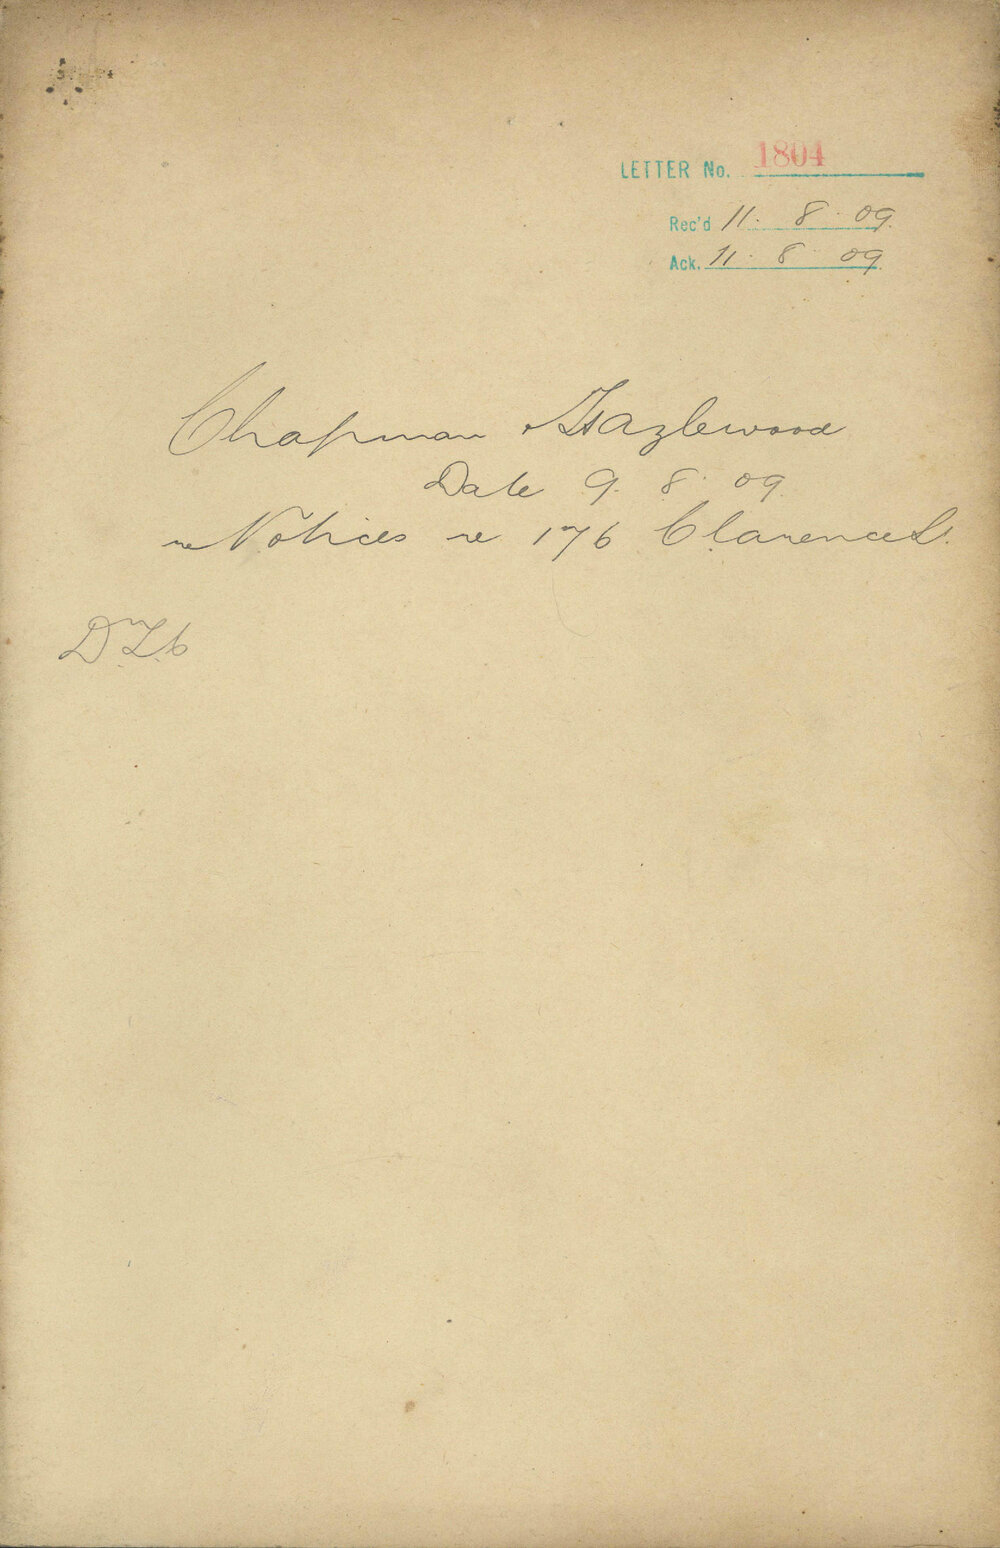 LETTER No. 1804
Rec'd 11. 8. 09.
Ack. 11. 8 09.
Chapman Hazlewood
Date 9. 8. 09.
re Notices re 176 Clarence St.